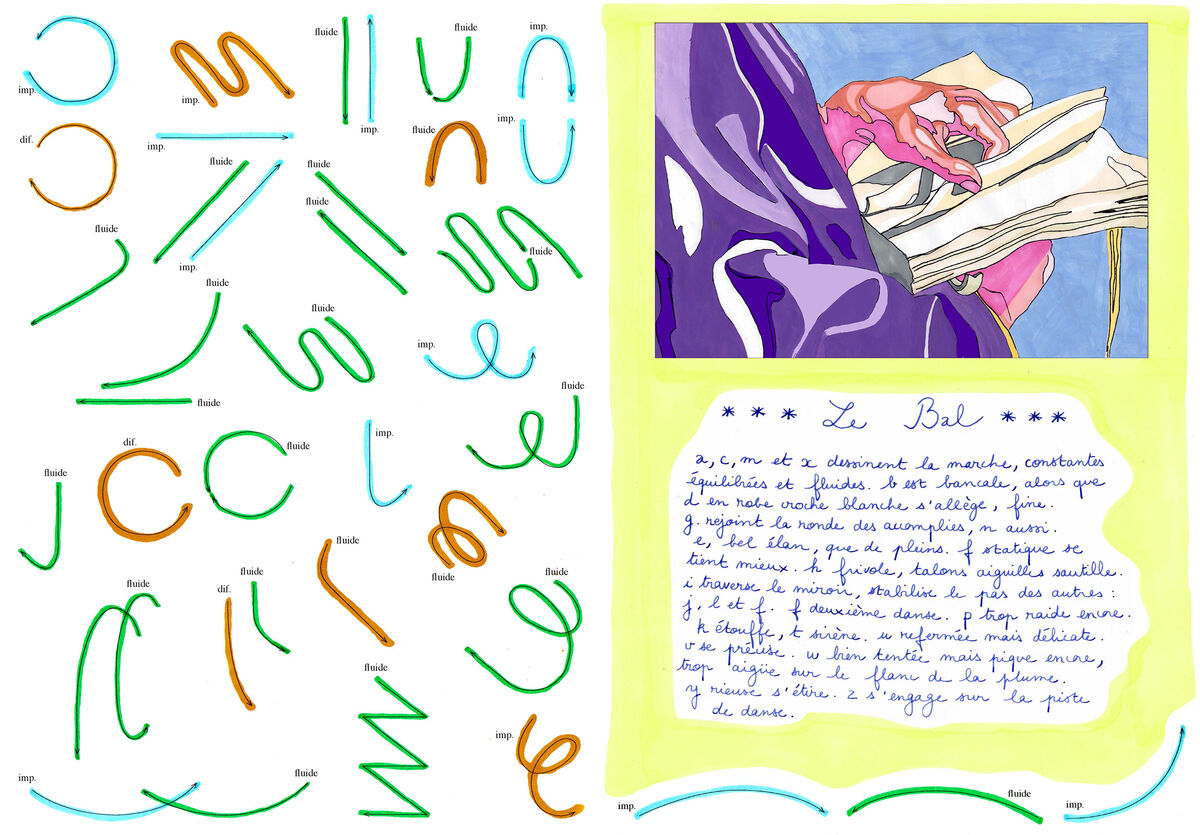 fluide
imp.
imp.
imp.
imp.
fluide
dif.
imp.
fluide
fluide
fluide
fluide
imp.
fluide
fluide
fluide
fluide
imp.
fluide
fluide
imp.
dif.
fluide
fluide
fluide
fluide
fluide
fluide
dif.
fluide
fluide
imp.
imp.
fluide
*** Le Bal ***
a, c, m et x dessinent la marche, constantes
équilibrées et fluides. b est bancale, alors que
d en robe croche blanche s'allège, fine.
g. rejoint la ronde des accomplies, n aussi.
e, bel élan, que de pleins. f statique se
tient mieux. h frivole, talons aiguilles sautille.
i traverse le miroir, stabilise le pas des autres :
j, l et f. f deuxième danse. p trop raide encore.
k étouffe, t sirène. u refermée mais délicate.
v se précise. w bien tentée mais pique encore,
trop aigüe sur le flanc de la plume.
y rieuse s'étire. z s'engage sur la piste
de danse.
imp.
fluide
imp.